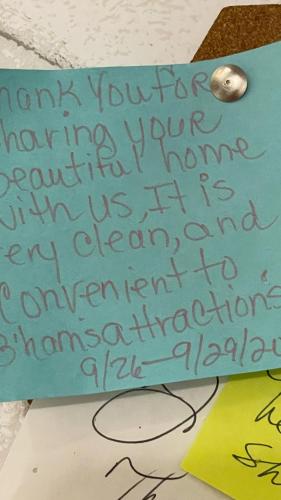 hank You for
haring your
beautiful home
with us, It is
ery clean, and
Convenient to
B'hams attractions
9/26-9/29/20
Th
he
sh